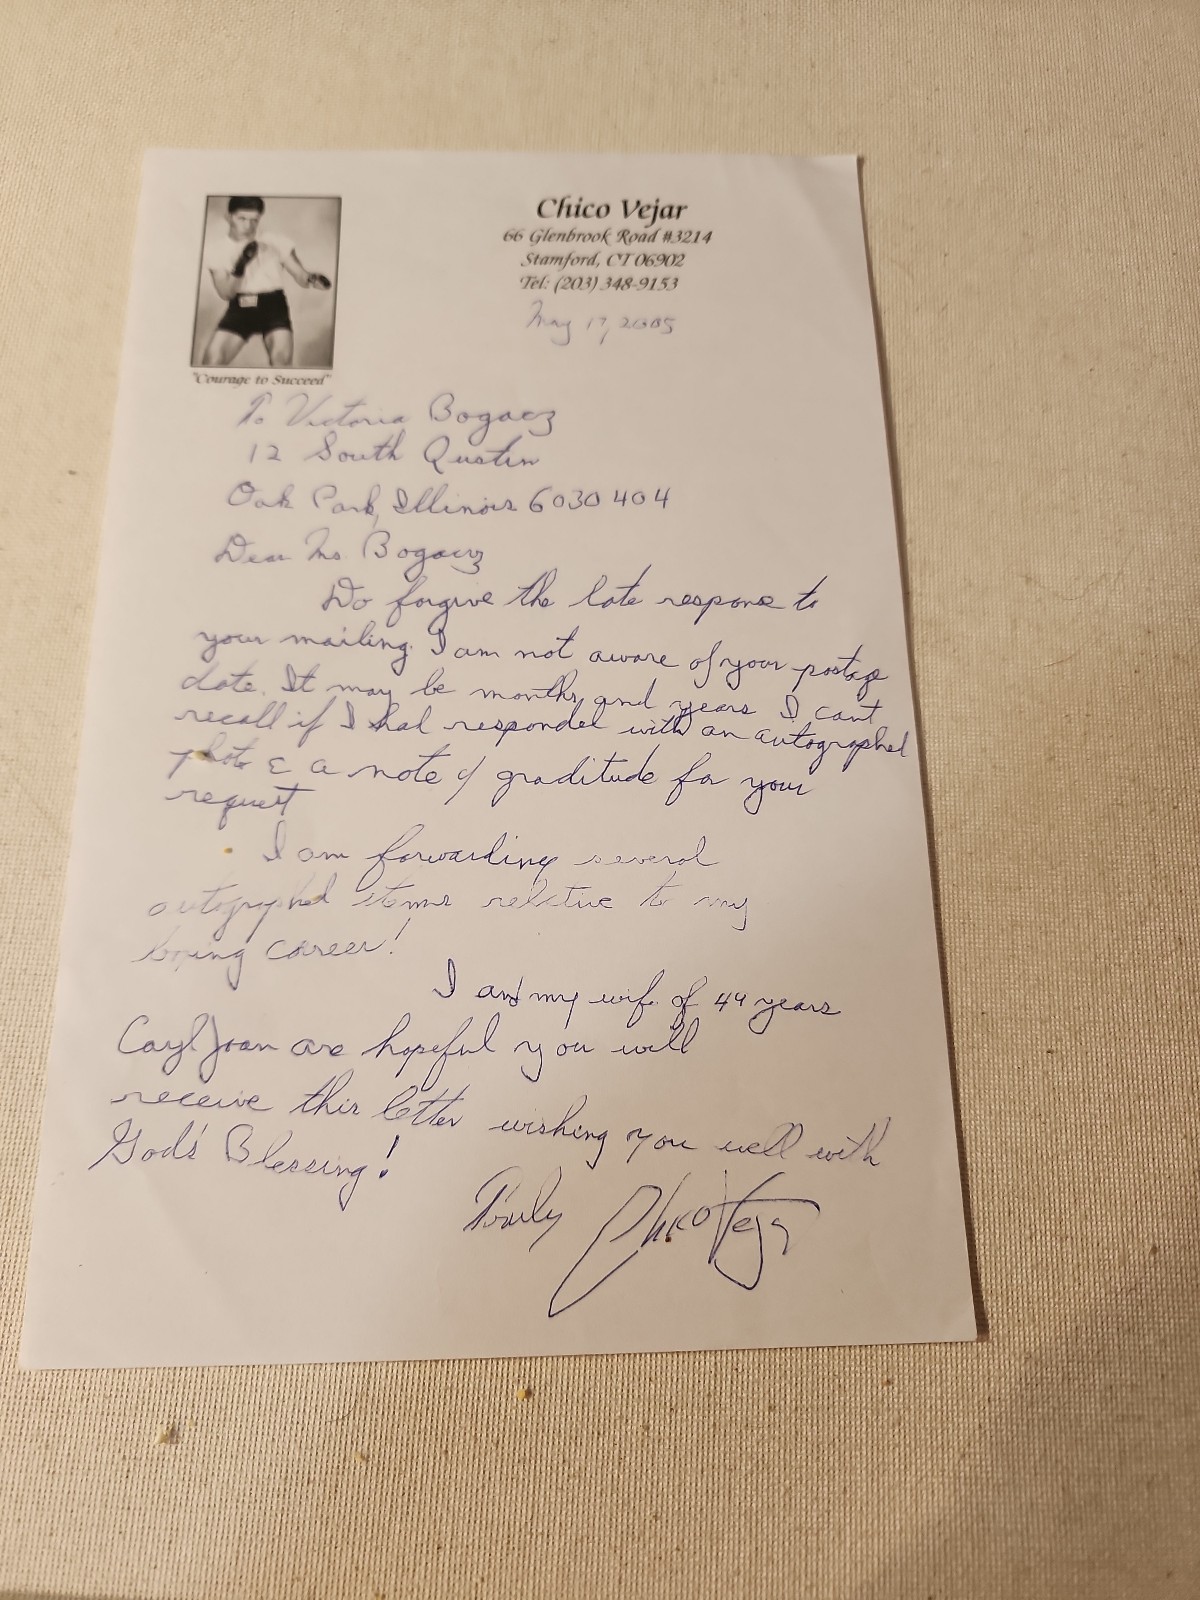 Chico Vejar
66 Glenbrook Road #3214
Stamford, CT 06902
Tel: (203) 348-9153
May 17, 2005
"Courage to Succeed"
To Victoria Bogacz
12 South Qustin
Oak Park, Illinois 6030404
Dear Ms Bogacz
Do forgive the late response to
your mailing. I am not aware of your postage
date. It may be months and years I cant
recall if I had responded with an autographed
photo & a note of graditude for your
request
I am forwarding several
autographed items relative to my
boxing career!
I and my wife of 49 years
Cayl Joan are hopeful you will
receive this letter wishing you well with
God's Blessing!
Truly Chico Vejar